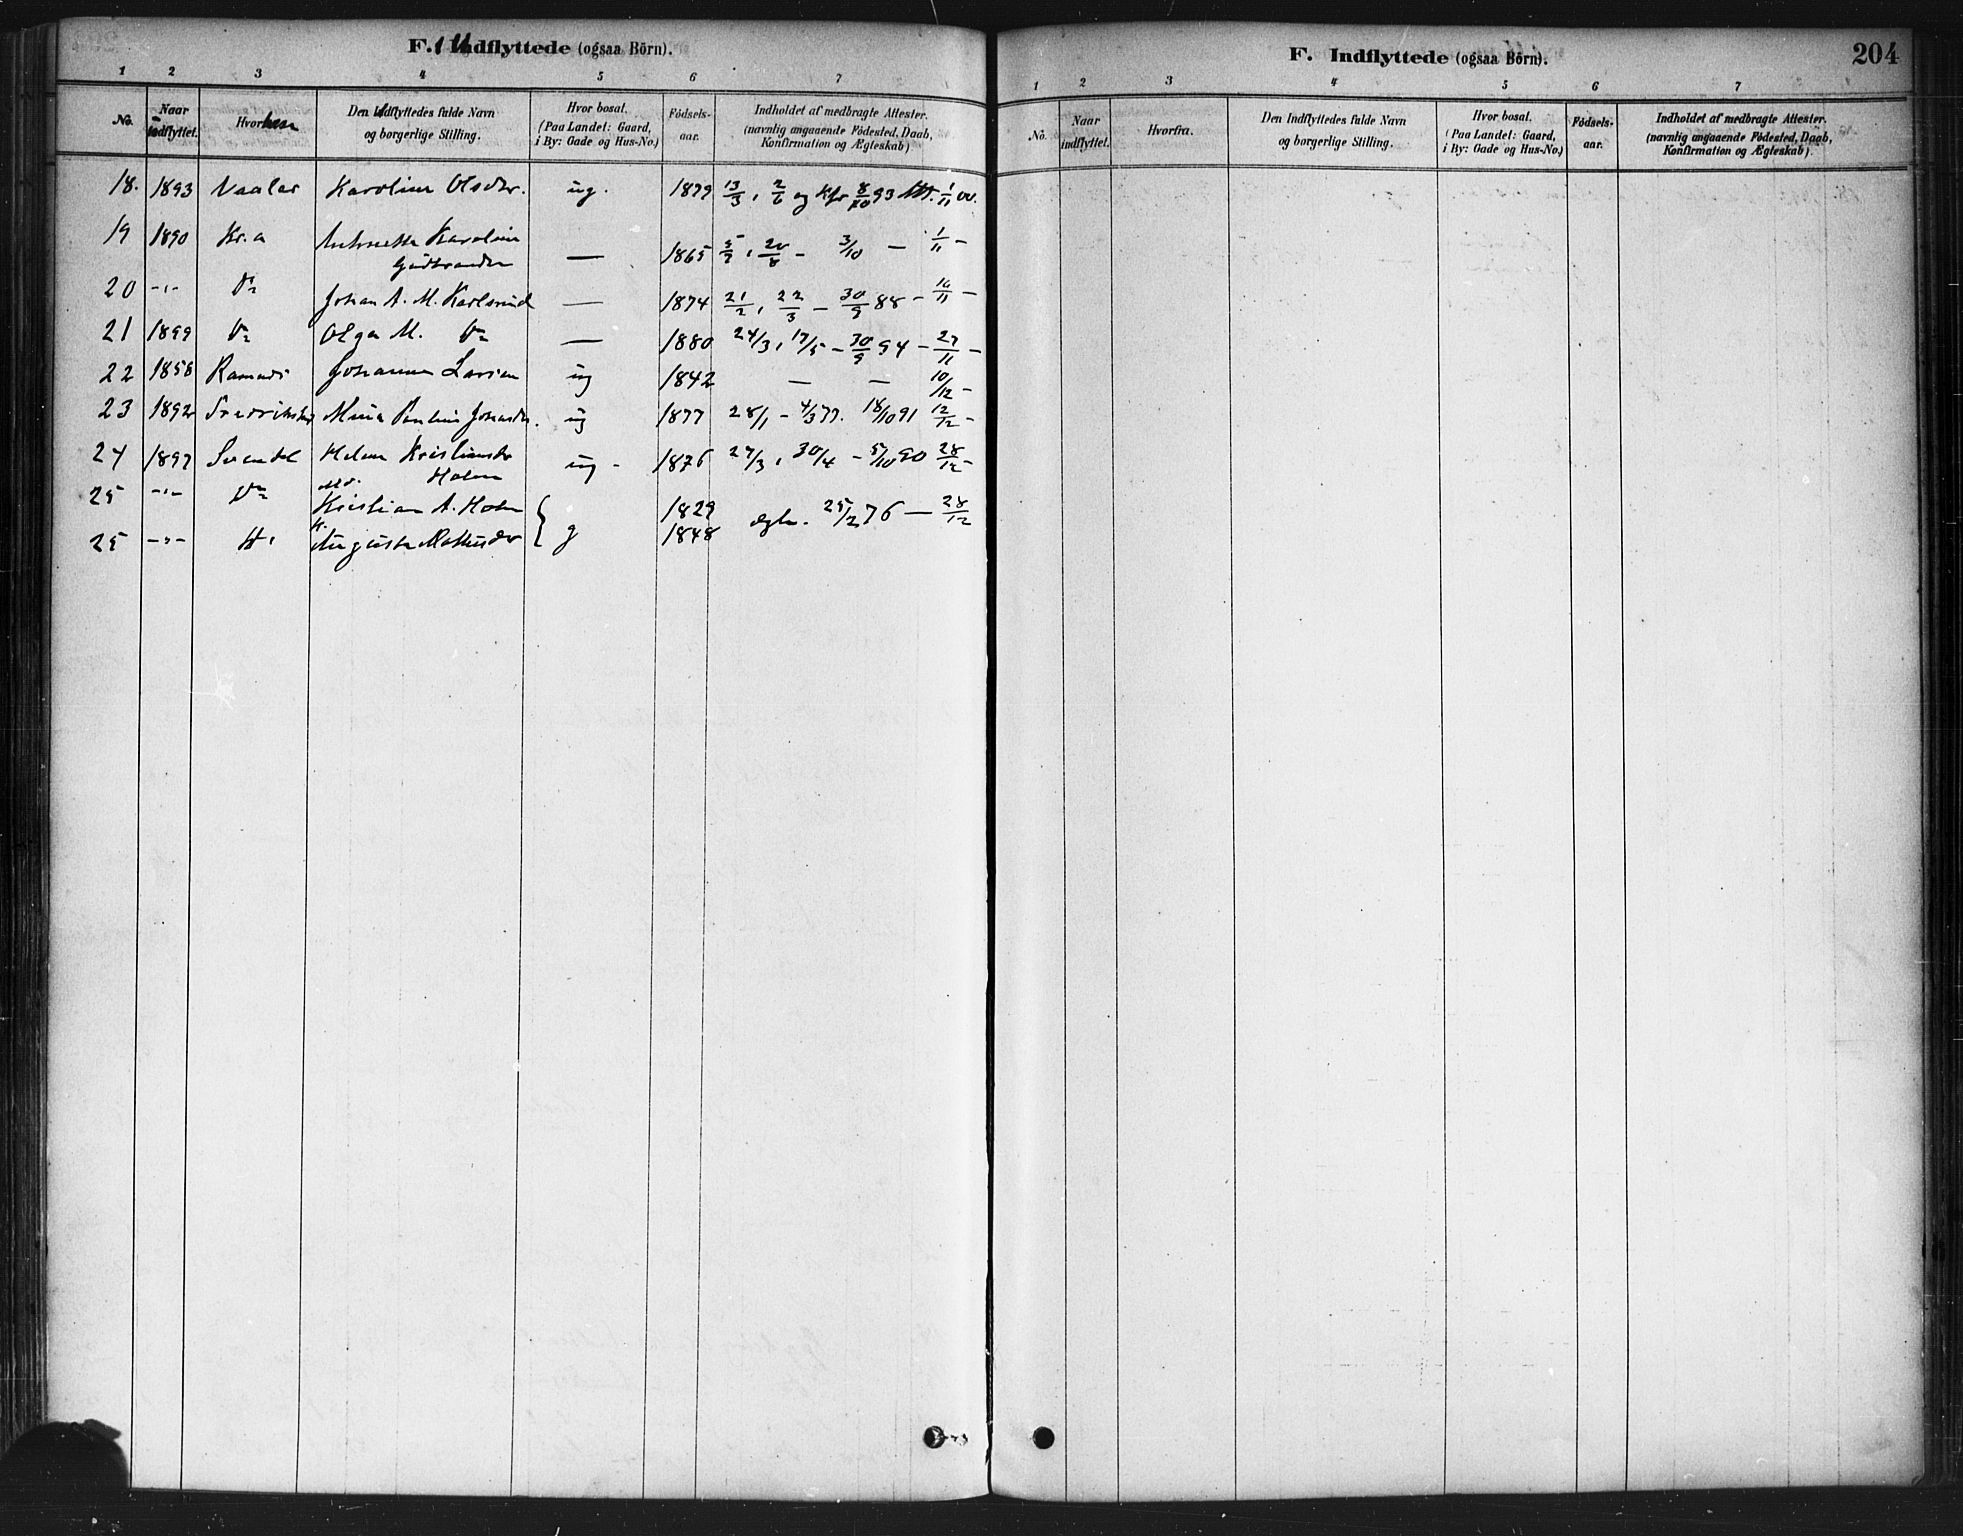 F. Indflyttede (ogsaa Börn).
1 2 3 4 5 6 7
No. Naar indflyttet. Hvorhen Den Indflyttedes fulde Navn og borgerlige Stilling. Hvor bosat. (Paa Landet: Gaard, i By: Gade og Hus-No.) Födsels-aar. Indholdet af medbragte Attester. (navnlig angaaende Födested, Daab, Konfirmation og Ægteskab)
18. 1893 Vaaler Karoline Olsdr. ug. 1879 13/3, 2/6 og kfr 8/10 93 Att. 1/11 00.
19 1890 Kr.a Karoline
Gudbrandsdr — 1865 20/8 – 3/10 — 1/11 –
20 -"- Do Johan A. M. Karlsrud — 1874 21/2, 22/3 – 30/9 88 – 16/11 –
21 1899 Do Olga M. Do — 1880 24/3, 17/5 – 30/9 94 – 27/11 –
22 1858 Ramnæs Johanne Larsen ug 1842 — — 10/12 –
23 1892 Mina Pauline Johansdr. ug 1877 28/1 – 4/3 77. 18/10 91 12/12 –
24 1897 Helene Kristiansdr
Holm ug - 1876 27/3, 30/4 – 5/10 90 28/12 –
25 -"- Do Kristian A. Holm { 1829 ægtv. 25/2 76 — 28/12
25 -"- Augusta g 1848
F. Indflyttede (ogsaa Börn).
204
1 2 3 4 5 6 7
No. Naar indflyttet. Hvorfra. Den Indflyttedes fulde Navn og borgerlige Stilling. Hvor bosat. (Paa Landet: Gaard, i By: Gade og Hus-No.) Födsels-aar. Indholdet af medbragte Attester. (navnlig angaaende Födested, Daab, Konfirmation og Ægteskab).